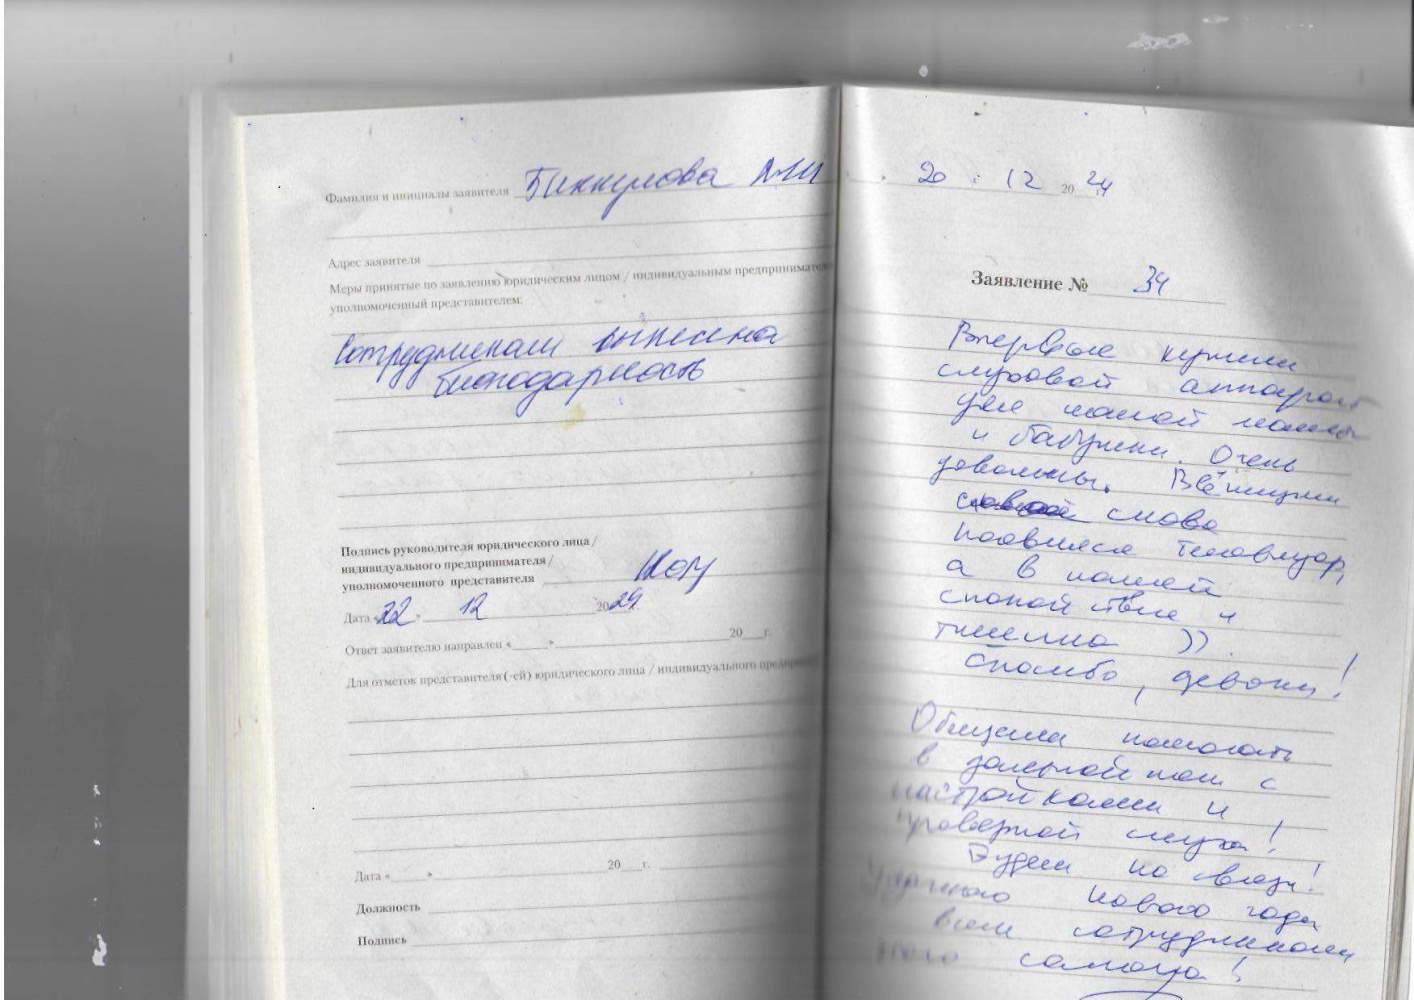 Фамилия и инициалы заявителя Биккулова А.И
Адрес заявителя
Меры принятые по заявлению юридическим лицом / индивидуальным предпринимател
уполномоченный представителем:
Сотрудникам вынесена
благодарность
Подпись руководителя юридического лица /
индивидуального предпринимателя /
уполномоченного представителя
Дата «22» 12 2024
Ответ заявителю направлен « » 20 г.
Для отметок представителя (-ей) юридического лица / индивидуального предпри
Дата « » 20 г.
Должность
Подпись
20 . 12 20 24
Заявление № 34
Впервые купили
слуховой аппарат
для нашей мамы
и бабушки. Очень
довольны. В её жизни
снова
появился телевизор,
а в нашей
спокойствие и
тишина )).
Спасибо, девочки!
Обещали помогать
в дальнейшем с
настройками и
проверкой слуха!
Будем на связи!
Нового года
всем сотрудникам
салона!